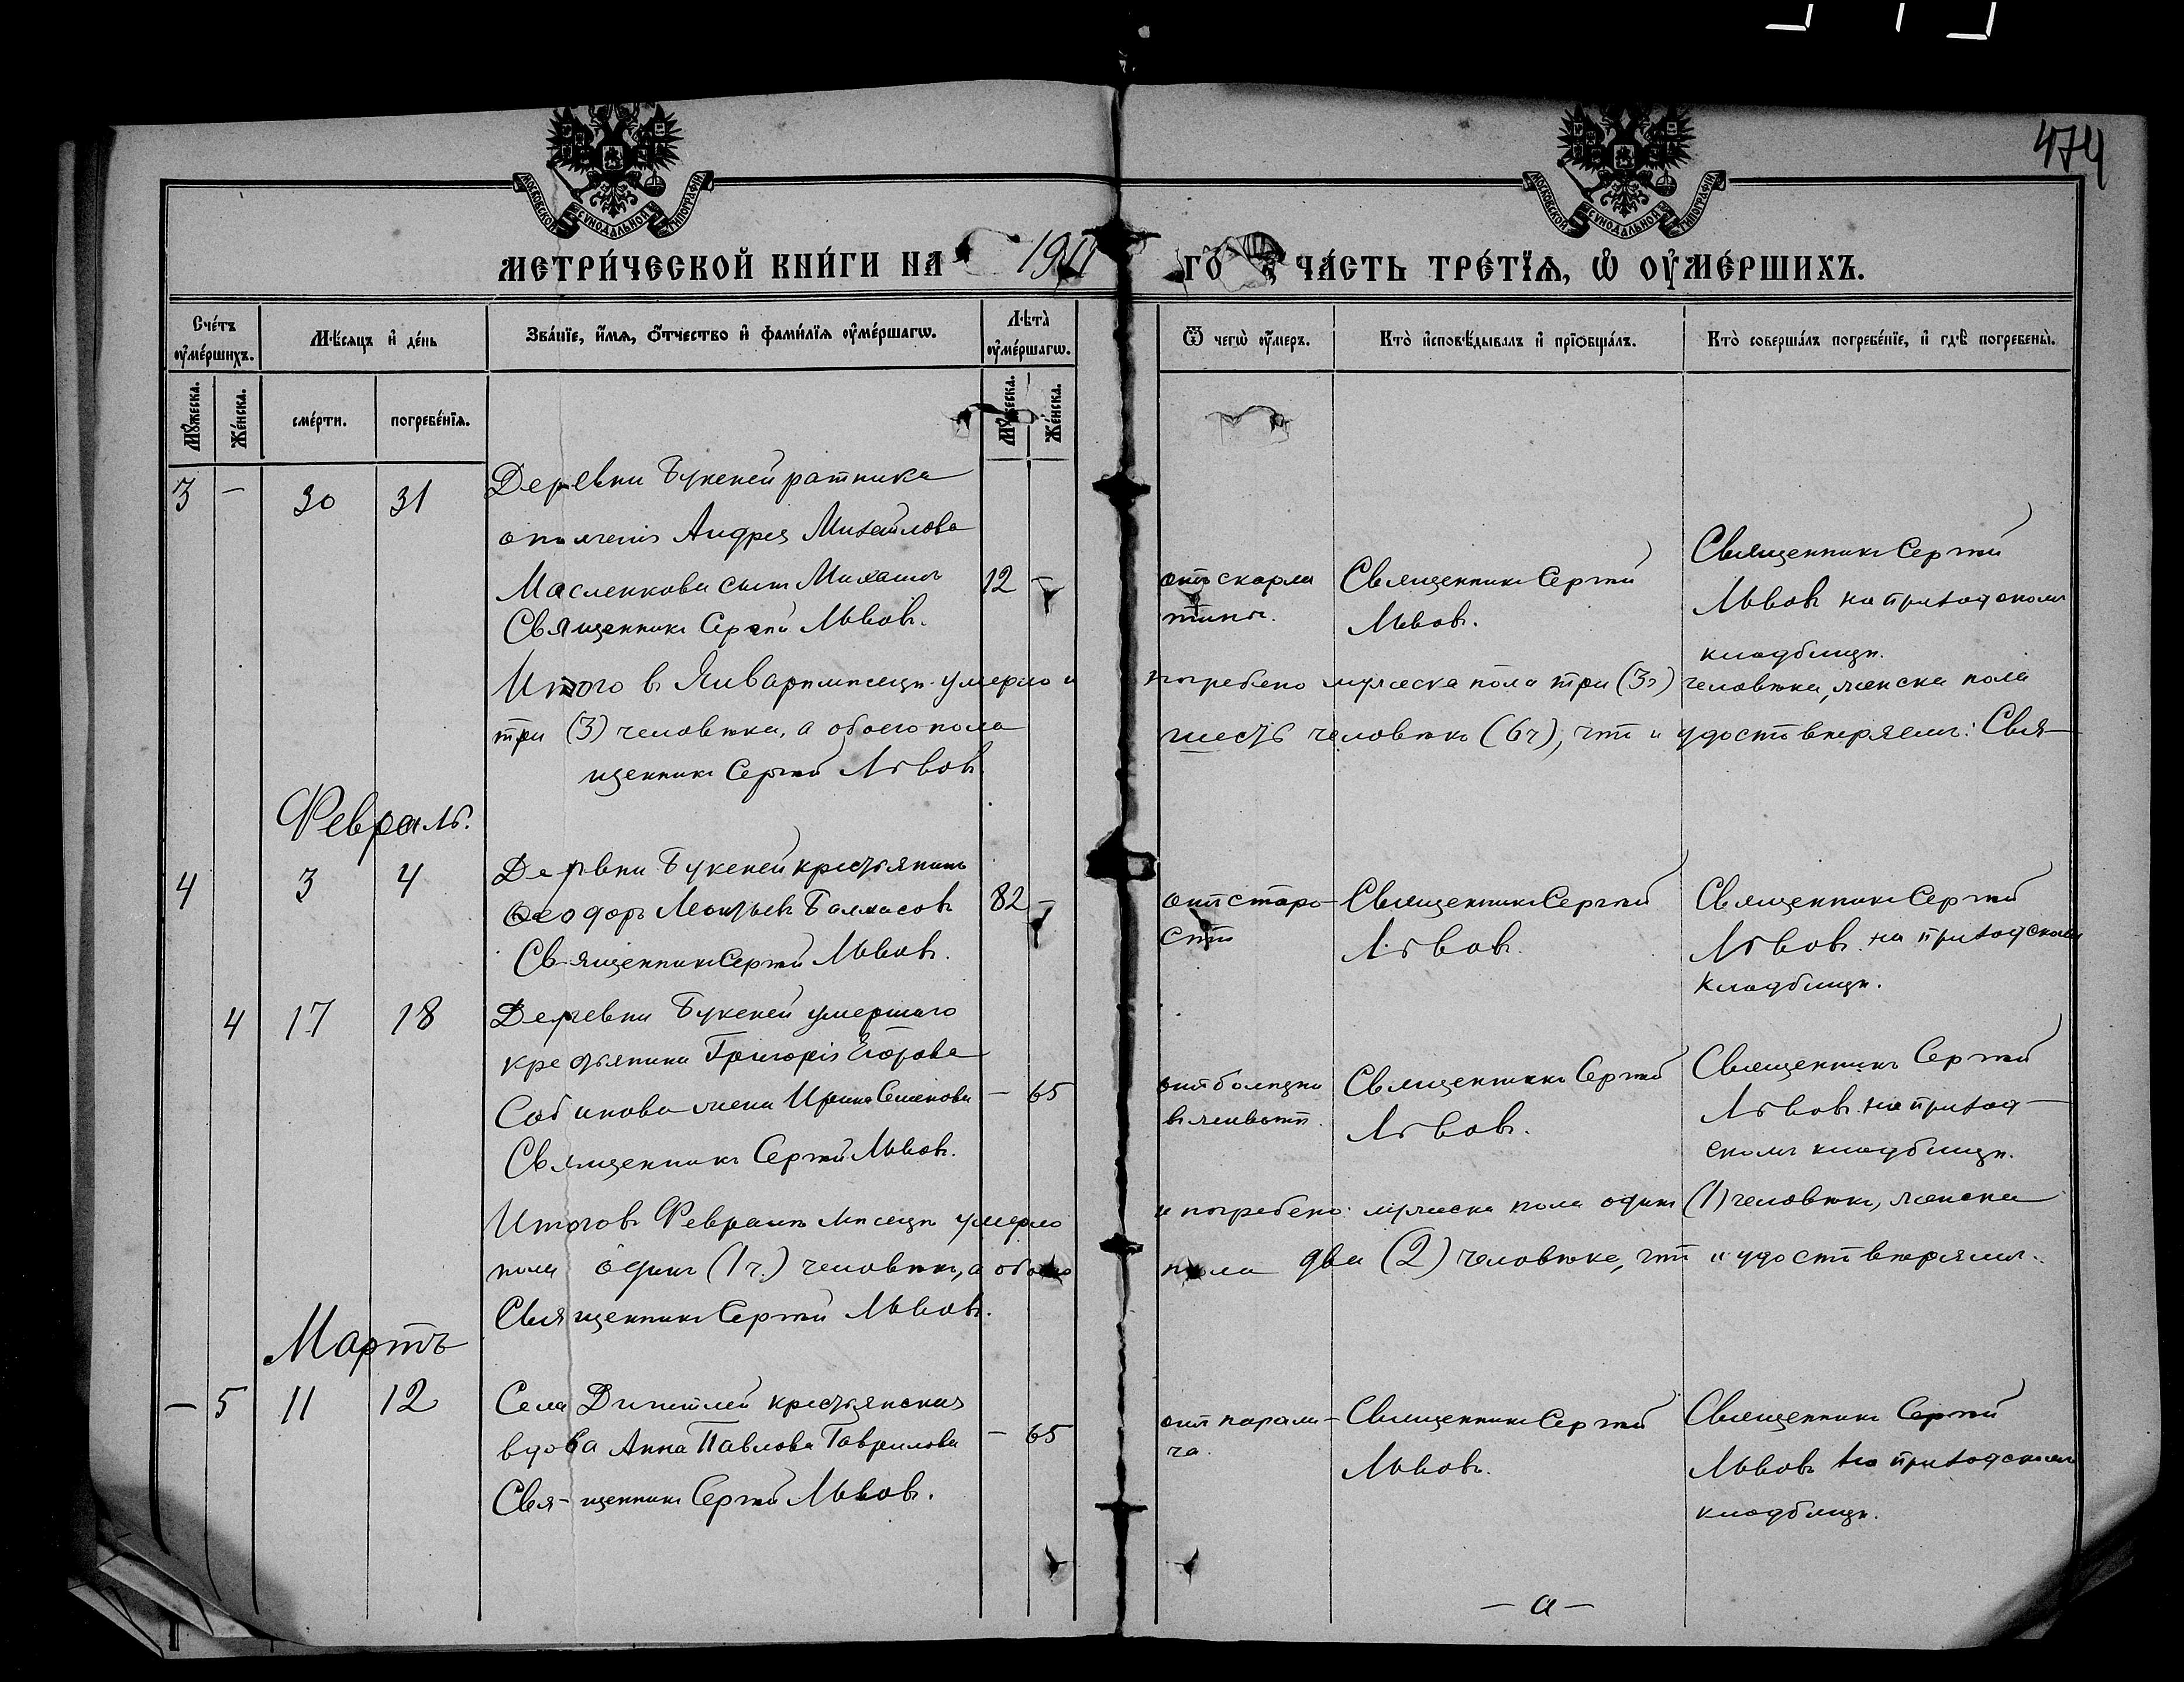 474
МОСКОВСКОЙ СѴНОДАЛЬНОЙ ТИПОГРАФІИ
МОСКОВСКОЙ СѴНОДАЛЬНОЙ ТИПОГРАФІИ
МЕТРИ́ЧЕСКОЙ КНИ́ГИ НА 1911 ГО ЧА́СТЬ ТРЕ́ТЇѦ, Ѽ ОУ҆МЕ́РШИХЪ.
Сче́тъ оу҆ме́ршихъ.
Мѣ́сяцъ и҆ де́нь
Зва́нїе, и҆́мѧ, ѻ҆́тчество и҆ фами́лїѧ оу҆ме́ршагѡ.
Лѣ́та̀ оу҆ме́ршагѡ.
Ѿ чегѡ̀ оу҆́меръ.
Кто̀ и҆сповѣ́дывалъ и҆ прїѡбща́лъ.
Кто̀ соверша́лъ погребе́нїе, и҆ гдѣ̀ погребены̀.
Мꙋ́жеска.
Же́нска.
сме́рти.
погребе́нїѧ.
Мꙋ́жеска.
Же́нска.
3 - 30 31
Деревни Букеней ратника
ополченія Андрея Михайлова
Масленкова сынъ Михаилъ 12 -
Священникъ Сергѣй Львовъ.
отъ скарла
тины.
Священникъ Сергѣй
Львовъ.
Священникъ Сергѣй
Львовъ на приходскомъ
кладбищѣ.
Итого въ Январѣ мѣсяцѣ умерло и погребено мужеска пола три (3ч) человѣка, женска пола
три (3) человѣка, а обоего пола шесть человѣкъ (6ч), что и удостовѣряемъ: Свя-
щенникъ Сергѣй Львовъ.
Февраль.
4 3 4
Деревни Букеней крестьянинъ
Ѳеодоръ Леонтьевъ Балмасовъ 82 -
Священникъ Сергѣй Львовъ.
отъ старо-
сти
Священникъ Сергѣй
Львовъ.
Священникъ Сергѣй
Львовъ на приходскомъ
кладбищѣ.
4 17 18
Деревни Букеней умершаго
крестьянина Григорія Егорова
Собинова жена Ирина Семенова - 65
Священникъ Сергѣй Львовъ.
отъ болѣзни
въ животѣ.
Священникъ Сергѣй
Львовъ.
Священникъ Сергѣй
Львовъ на приход-
скомъ кладбищѣ.
Итого въ Февралѣ мѣсяцѣ умерло и погребено: мужеска пола одинъ (1) человѣкъ, женска
пола одинъ (1 ч.) человѣкъ, а обоего пола два (2) человѣка, что и удостовѣряемъ.
Священникъ Сергѣй Львовъ.
Мартъ
- 5 11 12
Села крестьянская
вдова Анна Павлова Гаврилова - 65
Свя-щенникъ Сергѣй Львовъ.
отъ парали-
ча.
Священникъ Сергѣй
Львовъ.
Священникъ Сергѣй
Львовъ на приходскомъ
кладбищѣ.
- а -